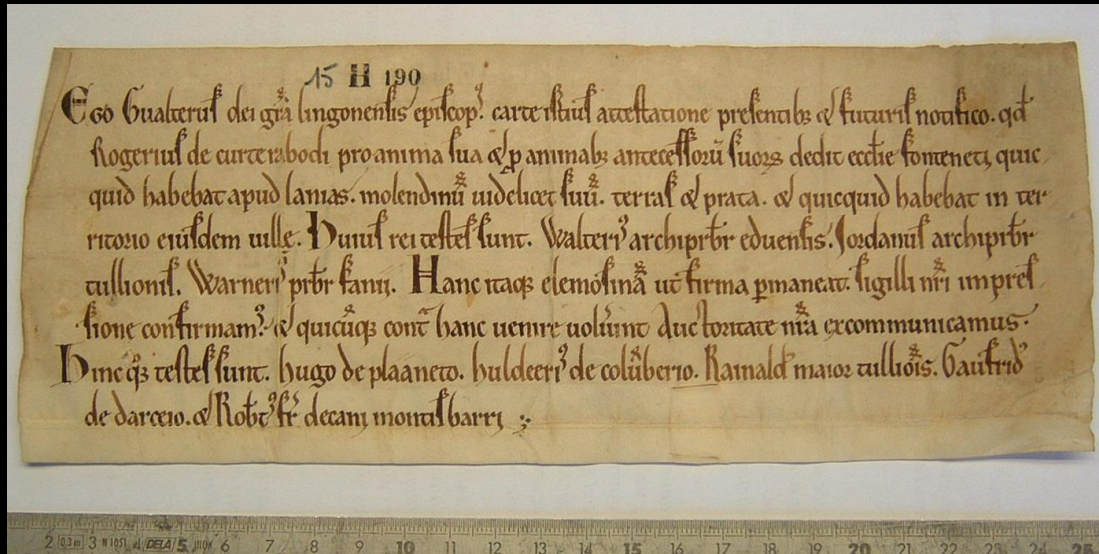 15 H 190
Ego Gualterius dei gr̃a lingonensis episcop᾽. carte istius attestatione presentib; & futuris notifico. qđ
Rogerius de curterabodi pro anima sua & ꝑ animab; antecessorũ suorꝝ dedit eccl̃ie fonteneti, quic-
quid habebat apud lanias. molendinũ uidelicet suũ. terras & prata. & quicquid habebat in ter-
ritorio eiusdem uillę. Huius rei testes sunt. Walteri᾽ archipr̃br eduensis. Jordanus archipr̃br
tullionis. Warneri᾽ pr̃br fanii. Hanc itaq; elemosinã ut firma ꝑmaneat. sigilli nr̃i impres-
sione confirmam᾽. & quicũq; cont̃ hanc uenire uolũint auctoritate nr̃a excommunicamus.
Hinc q᾽; testes sunt. hugo de plaaneto. huldeeri᾽ de colũberio. Rainald᾽ maior tullioĩs. Gaufrid᾽
de darceio. & Rob̃t᾽ fr̃ decani montisbarri
2 0,3 m 3 DELA 5 6 7 8 9 10 11 12 13 14 15 16 17 18 19 20 21 22 23 24 25